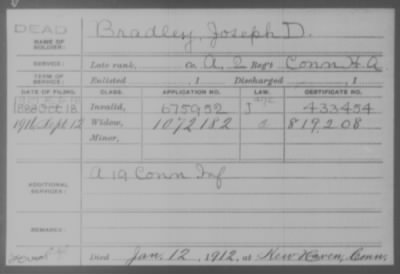 DEAD
NAME OF SOLDIER: Bradley, Joseph D.
SERVICE: Late rank, on A, 2 Reg't Conn H. A.
TERM OF SERVICE: Enlisted , 1 Discharged , 1
DATE OF FILING. CLASS. APPLICATION NO. LAW. CERTIFICATE NO.
1888 Oct 18 Invalid, 675952 J 433454
1916 Sept 12 Widow, 1072182 819208
Minor,
ADDITIONAL SERVICES: A 19 Conn Inf
REMARKS:
Died Jan. 12, 1912, at New Haven, Conn.